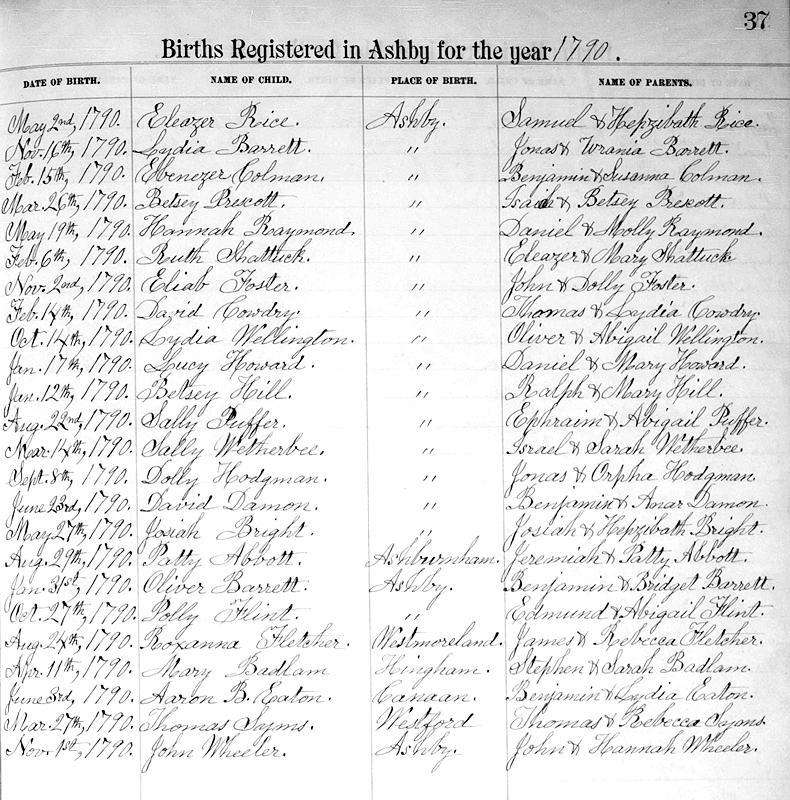 37
Births Registered in Ashby for the year 1790.
DATE OF BIRTH. NAME OF CHILD. PLACE OF BIRTH. NAME OF PARENTS.
May 2nd, 1790. Eleazer Rice. Ashby. Samuel & Hepzibath Rice.
Nov. 16th, 1790. Lydia Barrett. " Jonas & Urania Barrett.
Feb. 15th, 1790. Ebenezer Colman. " Benjamin & Susanna Colman.
Mar. 26th, 1790. Betsey Prescott. " Isaih & Betsey Prescott.
May 19th, 1790. Hannah Raymond. " Daniel & Molly Raymond.
Feb. 6th, 1790. Ruth Shattuck. " Eleazer & Mary Shattuck
Nov. 2nd, 1790. Eliab Foster. " John & Dolly Foster.
Feb. 14th, 1790. David Cowdry. " Thomas & Lydia Cowdry.
Oct. 14th, 1790. Lydia Wellington. " Oliver & Abigail Wellington.
Jan. 17th, 1790. Lucy Howard. " Daniel & Mary Howard.
Jan. 12th, 1790. Betsey Hill. " Ralph & Mary Hill.
Aug. 22nd, 1790. Sally Puffer. " Ephraim & Abigail Puffer.
Mar. 14th, 1790. Sally Wetherbee. " Israel & Sarah Wetherbee.
Sept. 8th, 1790. Dolly Hodgman. " Jonas & Orpha Hodgman.
June 23rd, 1790. David Damon. " Benjamin & Anar Damon.
May 27th, 1790. Josiah Bright. " Josiah & Hepzibath Bright.
Aug. 29th, 1790. Patty Abbott. Ashburnham. Jeremiah & Patty Abbott.
Jan. 31st, 1790. Oliver Barrett. Ashby. Benjamin & Bridget Barrett.
Oct. 27th, 1790. Polly Flint. " Edmund & Abigail Flint.
Aug. 24th, 1790. Roxanna Fletcher. Westmoreland. James & Rebecca Fletcher.
Apr. 11th, 1790. Mary Badlam Hingham. Stephen & Sarah Badlam.
June 3rd, 1790. Aaron B. Eaton. Canaan. Benjamin & Lydia Eaton.
Mar. 27th, 1790. Thomas Syms. Westford Thomas & Rebecca Syms.
Nov. 1st, 1790. John Wheeler. Ashby. John & Hannah Wheeler.